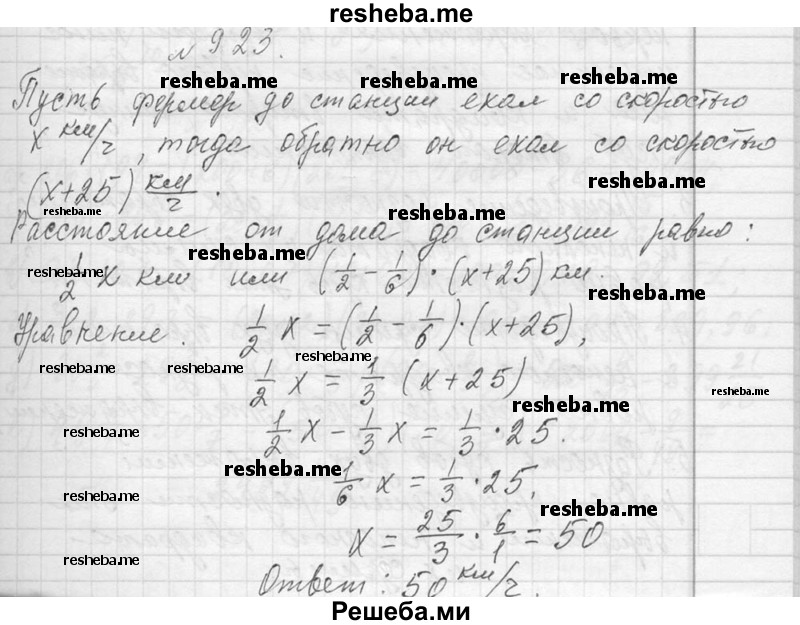 resheba.me
№ 923.
resheba.me resheba.me resheba.me
Пусть фермер до станции ехал со скоростью
x км/г, тогда обратно он ехал со скоростью
resheba.me
(x+25) км/г.
resheba.me resheba.me
Расстояние от дома до станции равно:
resheba.me resheba.me
1/2 x км или (1/2 − 1/6)·(x+25) км.
resheba.me
Уравнение. 1/2 x = (1/2 − 1/6)·(x+25),
resheba.me
resheba.me resheba.me
1/2 x = 1/3 (x+25)
resheba.me
resheba.me
resheba.me
1/2 x − 1/3 x = 1/3 · 25.
resheba.me
resheba.me
1/6 x = 1/3 · 25,
resheba.me
x = 25/3 · 6/1 = 50
resheba.me
Ответ: 50 км/г.
Решеба.ми